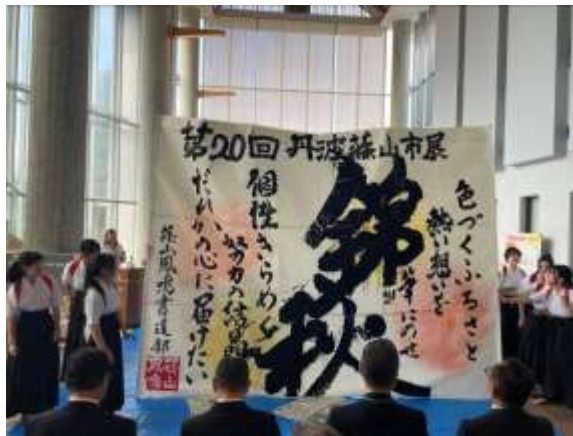 第20回 丹波篠山市展
色づくふるさと
熱い想いを
筆にのせ
錦秋
個性きらめく
努力の結晶
だれかの心に届けたい
篠山鳳鳴書道部